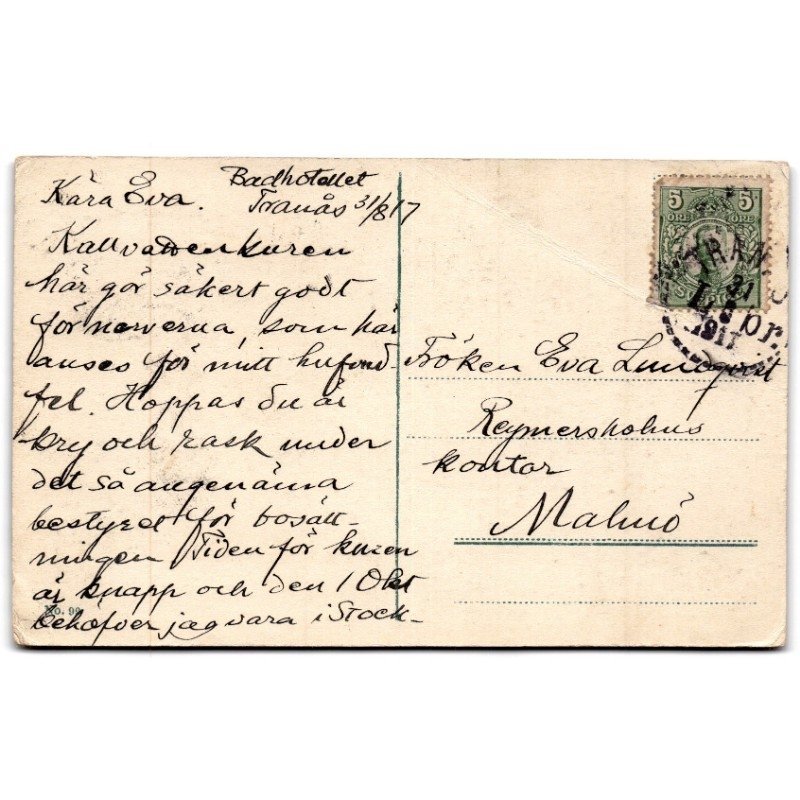 Badhotellet
Tranås 31/8 17
Kära Eva.
Kallvattenkuren
här gör säkert godt
för nerverna, som här
anses för mitt hufvud-
fel. Hoppas du är
kry och rask under
det så angenäma
bestyret för bosätt-
ningen Tiden för kuren
är knapp och den 1 Okt
behöfver jag vara i Stock-
No. 99
5 5
ÖRE ÖRE
TRANÅS
31
1917
Fröken Eva Lundqvist
Reymersholms
kontor
Malmö